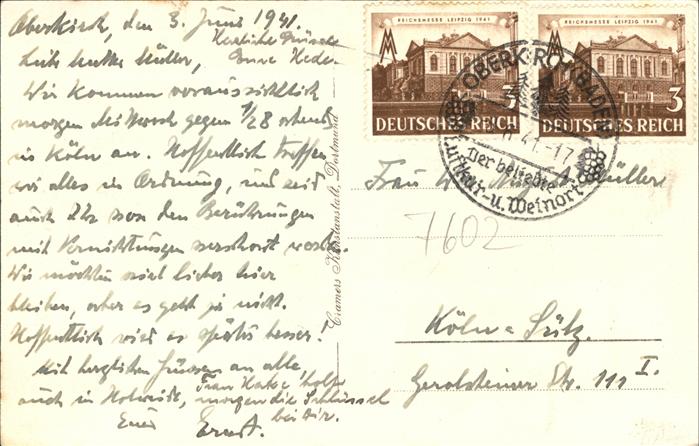 Oberkirch, den 3. Juni 1941.
Herzliche Grüsse
Eure Hede.
Liebe Mutter Müller,
Wir kommen voraussichtlich
morgen Mittwoch gegen 1/2 8 abend
in Köln an. Hoffentlich treffen
wir alles in Ordnung, und seid
auch Ihr von den Berührungen
mit Vernichtungen verschont
Wir möchten viel lieber hier
bleiben, aber es geht ja nicht.
Hoffentlich wird es später besser.
Mit herzlichen Grüssen an alle,
auch in
Frau holt
morgen die Schlüssel
bei Dir.
Euer Ernst.
Cramers Kunstanstalt, Dortmund
REICHSMESSE LEIPZIG 1941
3
DEUTSCHES REICH
REICHSMESSE LEIPZIG 1941
3
DEUTSCHES REICH
OBERKIRCH BADEN
41.-17
der beliebte
Luftkur- u. Weinort
Frau Müller
7602
Köln-Sülz.
Gerolsteiner Str. 111 I.